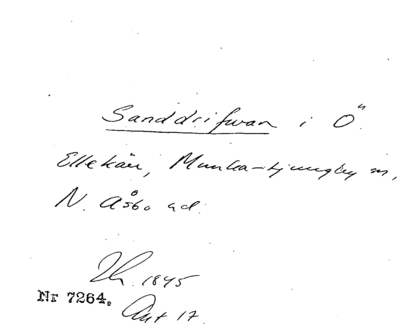 Sanddrifwan i Ö
Ellekärr, Munka-Ljungby sn,
N. Åsbo hd.
1845
Nr 7264. Akt 17